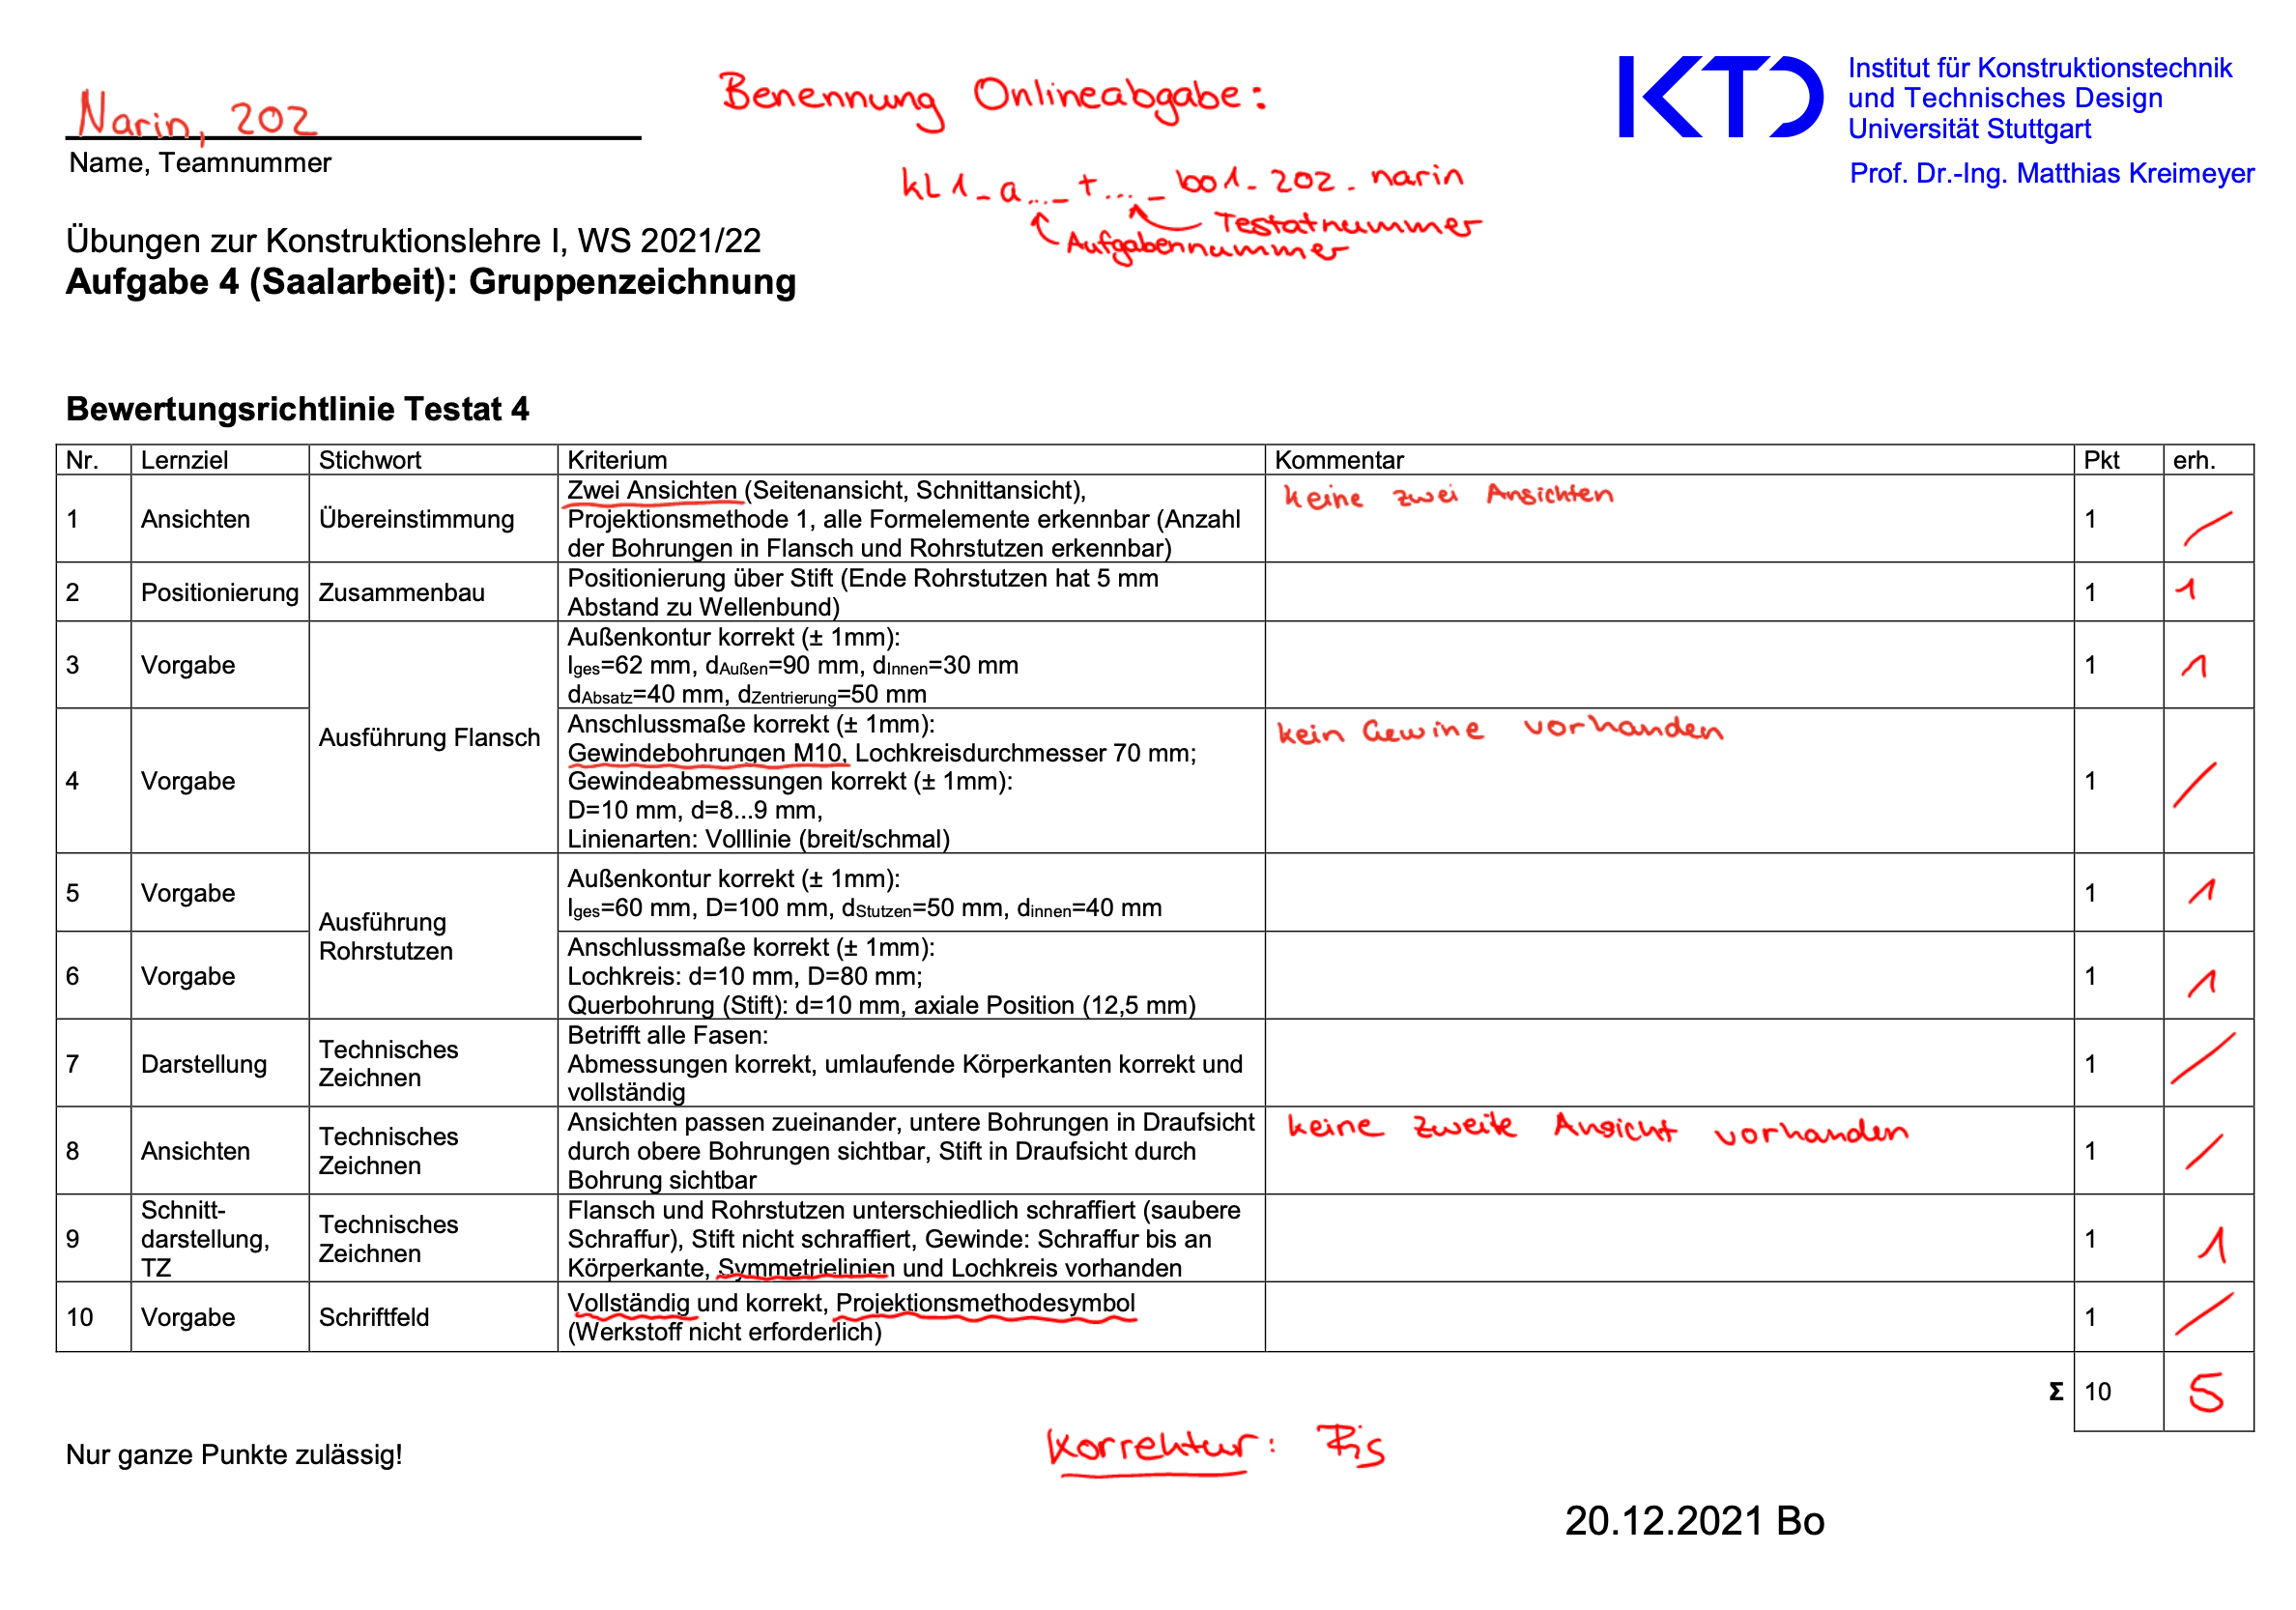 Narin, 202
Name, Teamnummer
Benennung Onlineabgabe:
kL1_a..._t..._bo1_202_narin
Testatnummer
Aufgabennummer
KTD
Institut für Konstruktionstechnik
und Technisches Design
Universität Stuttgart
Prof. Dr.-Ing. Matthias Kreimeyer
Übungen zur Konstruktionslehre I, WS 2021/22
Aufgabe 4 (Saalarbeit): Gruppenzeichnung
Bewertungsrichtlinie Testat 4
Nr. Lernziel Stichwort Kriterium Kommentar Pkt erh.
1 Ansichten Übereinstimmung
Zwei Ansichten (Seitenansicht, Schnittansicht),
Projektionsmethode 1, alle Formelemente erkennbar (Anzahl
der Bohrungen in Flansch und Rohrstutzen erkennbar)
keine zwei Ansichten
1 /
2 Positionierung Zusammenbau
Positionierung über Stift (Ende Rohrstutzen hat 5 mm
Abstand zu Wellenbund)
1 1
3 Vorgabe
Ausführung Flansch
Außenkontur korrekt (± 1mm):
lges=62 mm, dAußen=90 mm, dInnen=30 mm
dAbsatz=40 mm, dZentrierung=50 mm
1 1
4 Vorgabe
Anschlussmaße korrekt (± 1mm):
Gewindebohrungen M10, Lochkreisdurchmesser 70 mm;
Gewindeabmessungen korrekt (± 1mm):
D=10 mm, d=8...9 mm,
Linienarten: Volllinie (breit/schmal)
kein Gewine vorhanden
1 /
5 Vorgabe
Ausführung
Rohrstutzen
Außenkontur korrekt (± 1mm):
lges=60 mm, D=100 mm, dStutzen=50 mm, dinnen=40 mm
1 1
6 Vorgabe
Anschlussmaße korrekt (± 1mm):
Lochkreis: d=10 mm, D=80 mm;
Querbohrung (Stift): d=10 mm, axiale Position (12,5 mm)
1 1
7 Darstellung
Technisches
Zeichnen
Betrifft alle Fasen:
Abmessungen korrekt, umlaufende Körperkanten korrekt und
vollständig
1 /
8 Ansichten
Technisches
Zeichnen
Ansichten passen zueinander, untere Bohrungen in Draufsicht
durch obere Bohrungen sichtbar, Stift in Draufsicht durch
Bohrung sichtbar
keine zweite Ansicht vorhanden
1 /
9
Schnitt-
darstellung,
TZ
Technisches
Zeichnen
Flansch und Rohrstutzen unterschiedlich schraffiert (saubere
Schraffur), Stift nicht schraffiert, Gewinde: Schraffur bis an
Körperkante, Symmetrielinien und Lochkreis vorhanden
1 1
10 Vorgabe Schriftfeld
Vollständig und korrekt, Projektionsmethodesymbol
(Werkstoff nicht erforderlich)
1 /
Σ 10 5
Nur ganze Punkte zulässig!
Korrektur:
20.12.2021 Bo